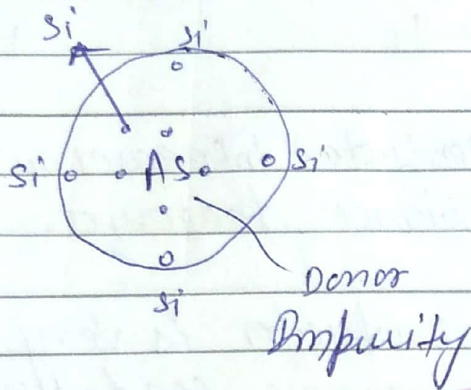 Si
Si
Si As Si
Si
Donor
Impurity